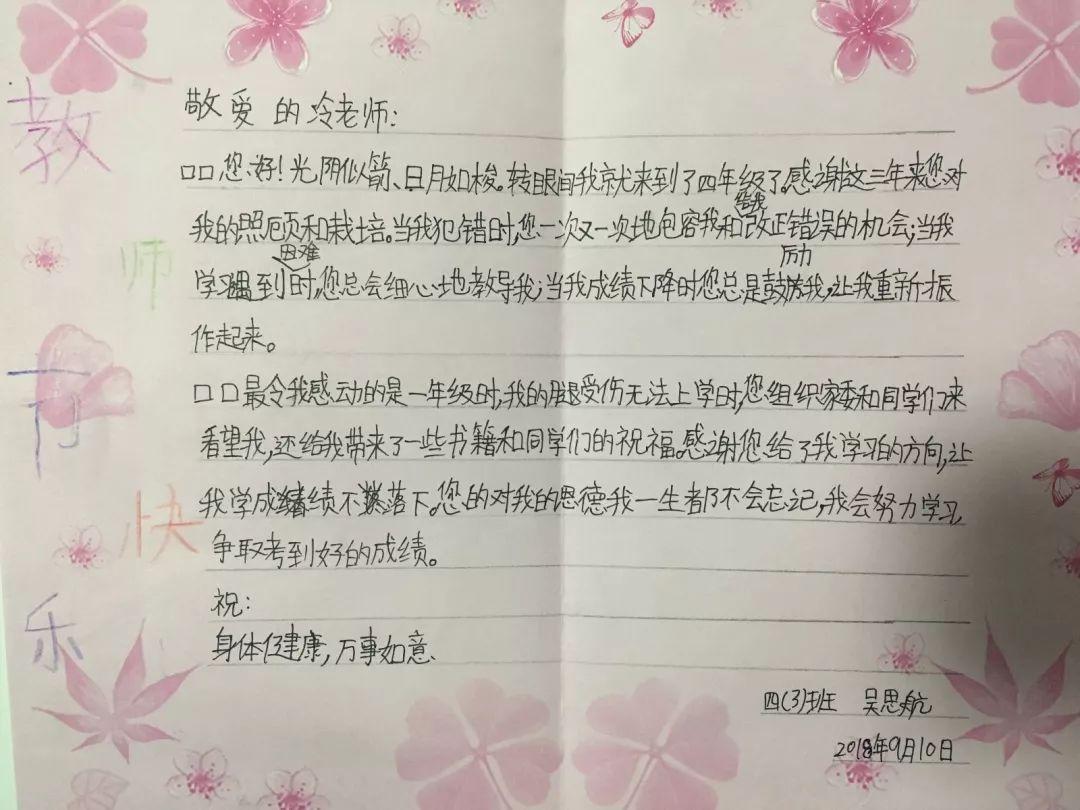 教师节快乐
敬爱的冷老师:
□□您好!光阴似箭、日月如梭。转眼间我就来到了四年级了。感谢这三年来您对
我的照顾和栽培。当我犯错时,您一次又一次地包容我和给我改正错误的机会;当我
学习遇到困难时,您总会细心地教导我;当我成绩下降时您总是鼓励我,让我重新振
作起来。
□□最令我感动的是一年级时,我的腿受伤无法上学时,您组织家委和同学们来
看望我,还给我带来了一些书籍和同学们的祝福。感谢您给了我学习的方向,让
我学成绩不落下。您的对我的恩德我一生都不会忘记,我会努力学习,
争取考到好的成绩。
祝:
身体健康,万事如意、
四(3)班 吴思航
2018年9月10日